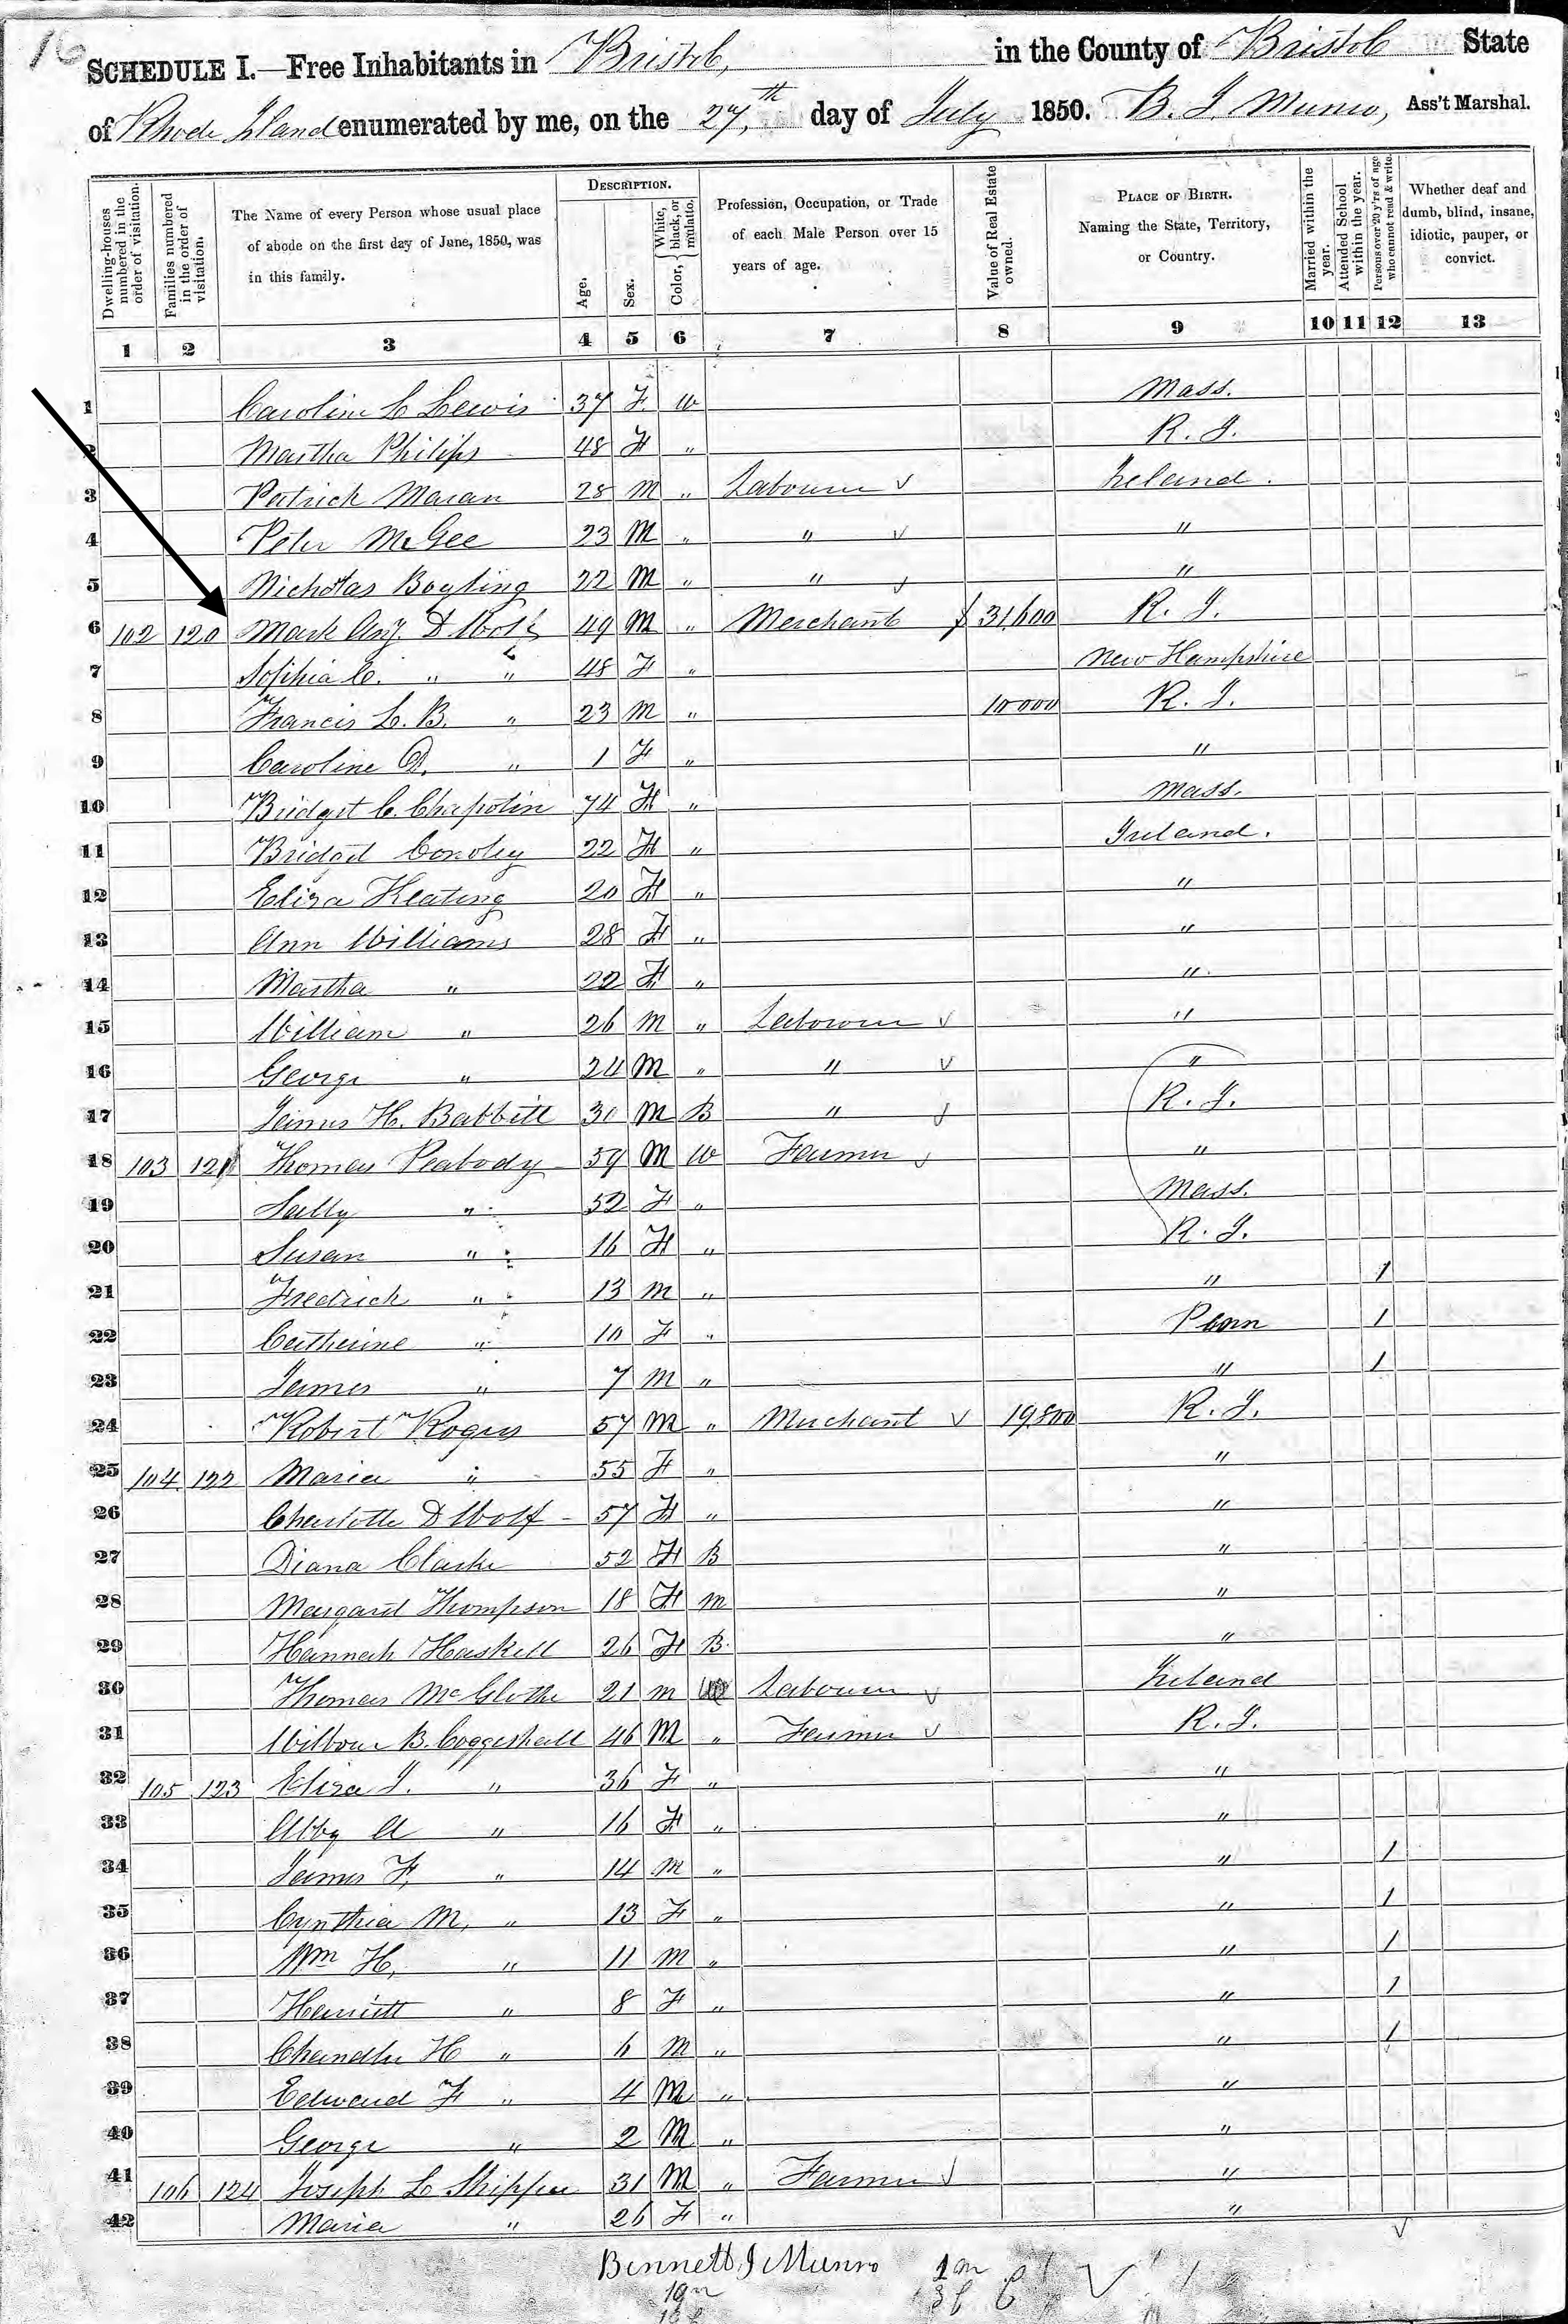 16
SCHEDULE I.—Free Inhabitants in Bristol, in the County of Bristol State
of Rhode Island enumerated by me, on the 27,th day of July 1850. B. J. Munro, Ass't Marshal.
Dwelling-houses numbered in the order of visitation.
Families numbered in the order of visitation.
The Name of every Person whose usual place of abode on the first day of June, 1850, was in this family.
DESCRIPTION.
Age.
Sex.
Color, { White, black, or mulatto.
Profession, Occupation, or Trade of each Male Person over 15 years of age.
Value of Real Estate owned.
PLACE OF BIRTH. Naming the State, Territory, or Country.
Married within the year.
Attended School within the year.
Persons over 20 y'rs of age who cannot read & write.
Whether deaf and dumb, blind, insane, idiotic, pauper, or convict.
1 2 3 4 5 6 7 8 9 10 11 12 13
1 Caroline L Lewis 37 F. W Mass.
2 Martha Philips 48 F " R. I.
3 Patrick Maran 28 M " Labourer √ Ireland.
4 Peter McGee 23 M " " √ "
5 Nicholas Boyling 22 M " " √ "
6 102 120 Mark Any. D Wolf 49 M " Merchant $ 31,600 R. I.
7 Sophia C. " " 48 F " New Hampshire
8 Francis L. B. " 23 M " 10000 R. I.
9 Caroline D. " 1 F " "
10 Bridget C. Chaplin 74 F " Mass.
11 Bridget Conoley 22 F " Ireland.
12 Eliza Keating 20 F " "
13 Ann Williams 28 F " "
14 Martha " 22 F " "
15 William " 26 M " Labourer √ "
16 George " 24 M " " √ "
17 James H. Babbitt 30 M B " √ R. I.
18 103 121 Thomas Peabody 59 M W Farmer √ "
19 Sally " 52 F " Mass.
20 Susan " 16 F " R. I.
21 Fredrick " 13 M " " 1
22 Catherine " 10 F " 1
23 James " 7 M " " 1
24 Robert Rogers 57 M " Merchant √ 19,800 R. I.
25 104 122 Maria " 55 F " "
26 Charlotte D Wolf 57 F " "
27 Diana Clarke 52 F B "
28 Margaret Thompson 18 F M "
29 Hannah Haskell 26 F B. "
30 Thomas 21 M W Labourer √ Ireland
31 Wilbour B. Coggeshall 46 M " Farmer √ R. I.
32 105 123 Eliza J. " 36 F " "
33 Abby A " 16 F " "
34 James F, " 14 M " " 1
35 Cynthia M, " 13 F " " 1
36 Wm H, " 11 M " " 1
37 Harriett " 8 F " " 1
38 Chandler H " 6 M " " 1
39 Edward F " 4 M " "
40 George " 2 M " "
41 106 124 Joseph L Shippee 31 M " Farmer √ "
42 Maria " 26 F " "
Bennett J Munro